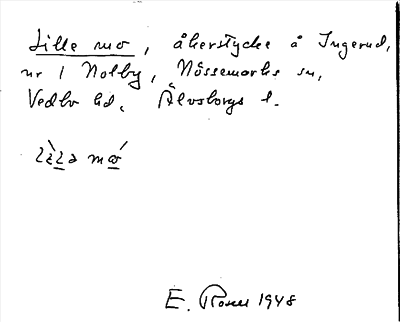 Lille mo, åkerstycke å Ingerud,
nr 1 Nolby, Nössemarks sn,
Vedbo hd, Älvsborgs l.
E. Rosell 1948